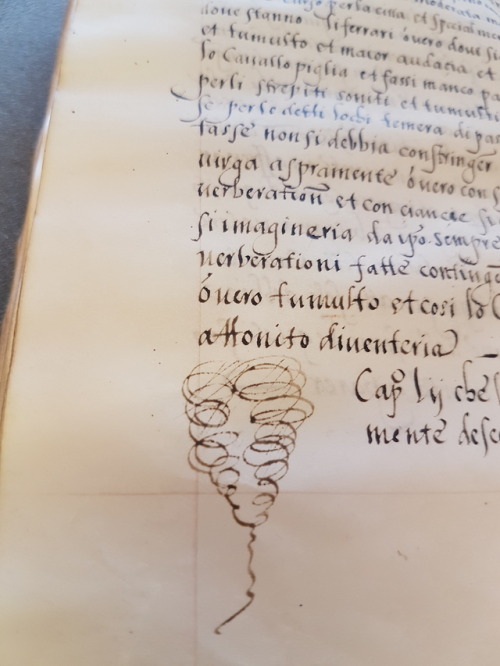 curso per la citta, et spetial me
doue stanno li ferrari óuero doue si
et tumulto et maior audacia, et
lo Cauallo piglia et fassi manco pa
perli strepiti soniti et tumulti
se perle detti lochi temera di pas
tasse non si debbia constringer
uirga aspramente óuero con s
uerberationi et con ciancie si
si imagineria da ipo. sempre
uerberationi fatte contingen
óuero tumulto et cosi lo C
attonito diuenteria
Capo lij che l
mente desc